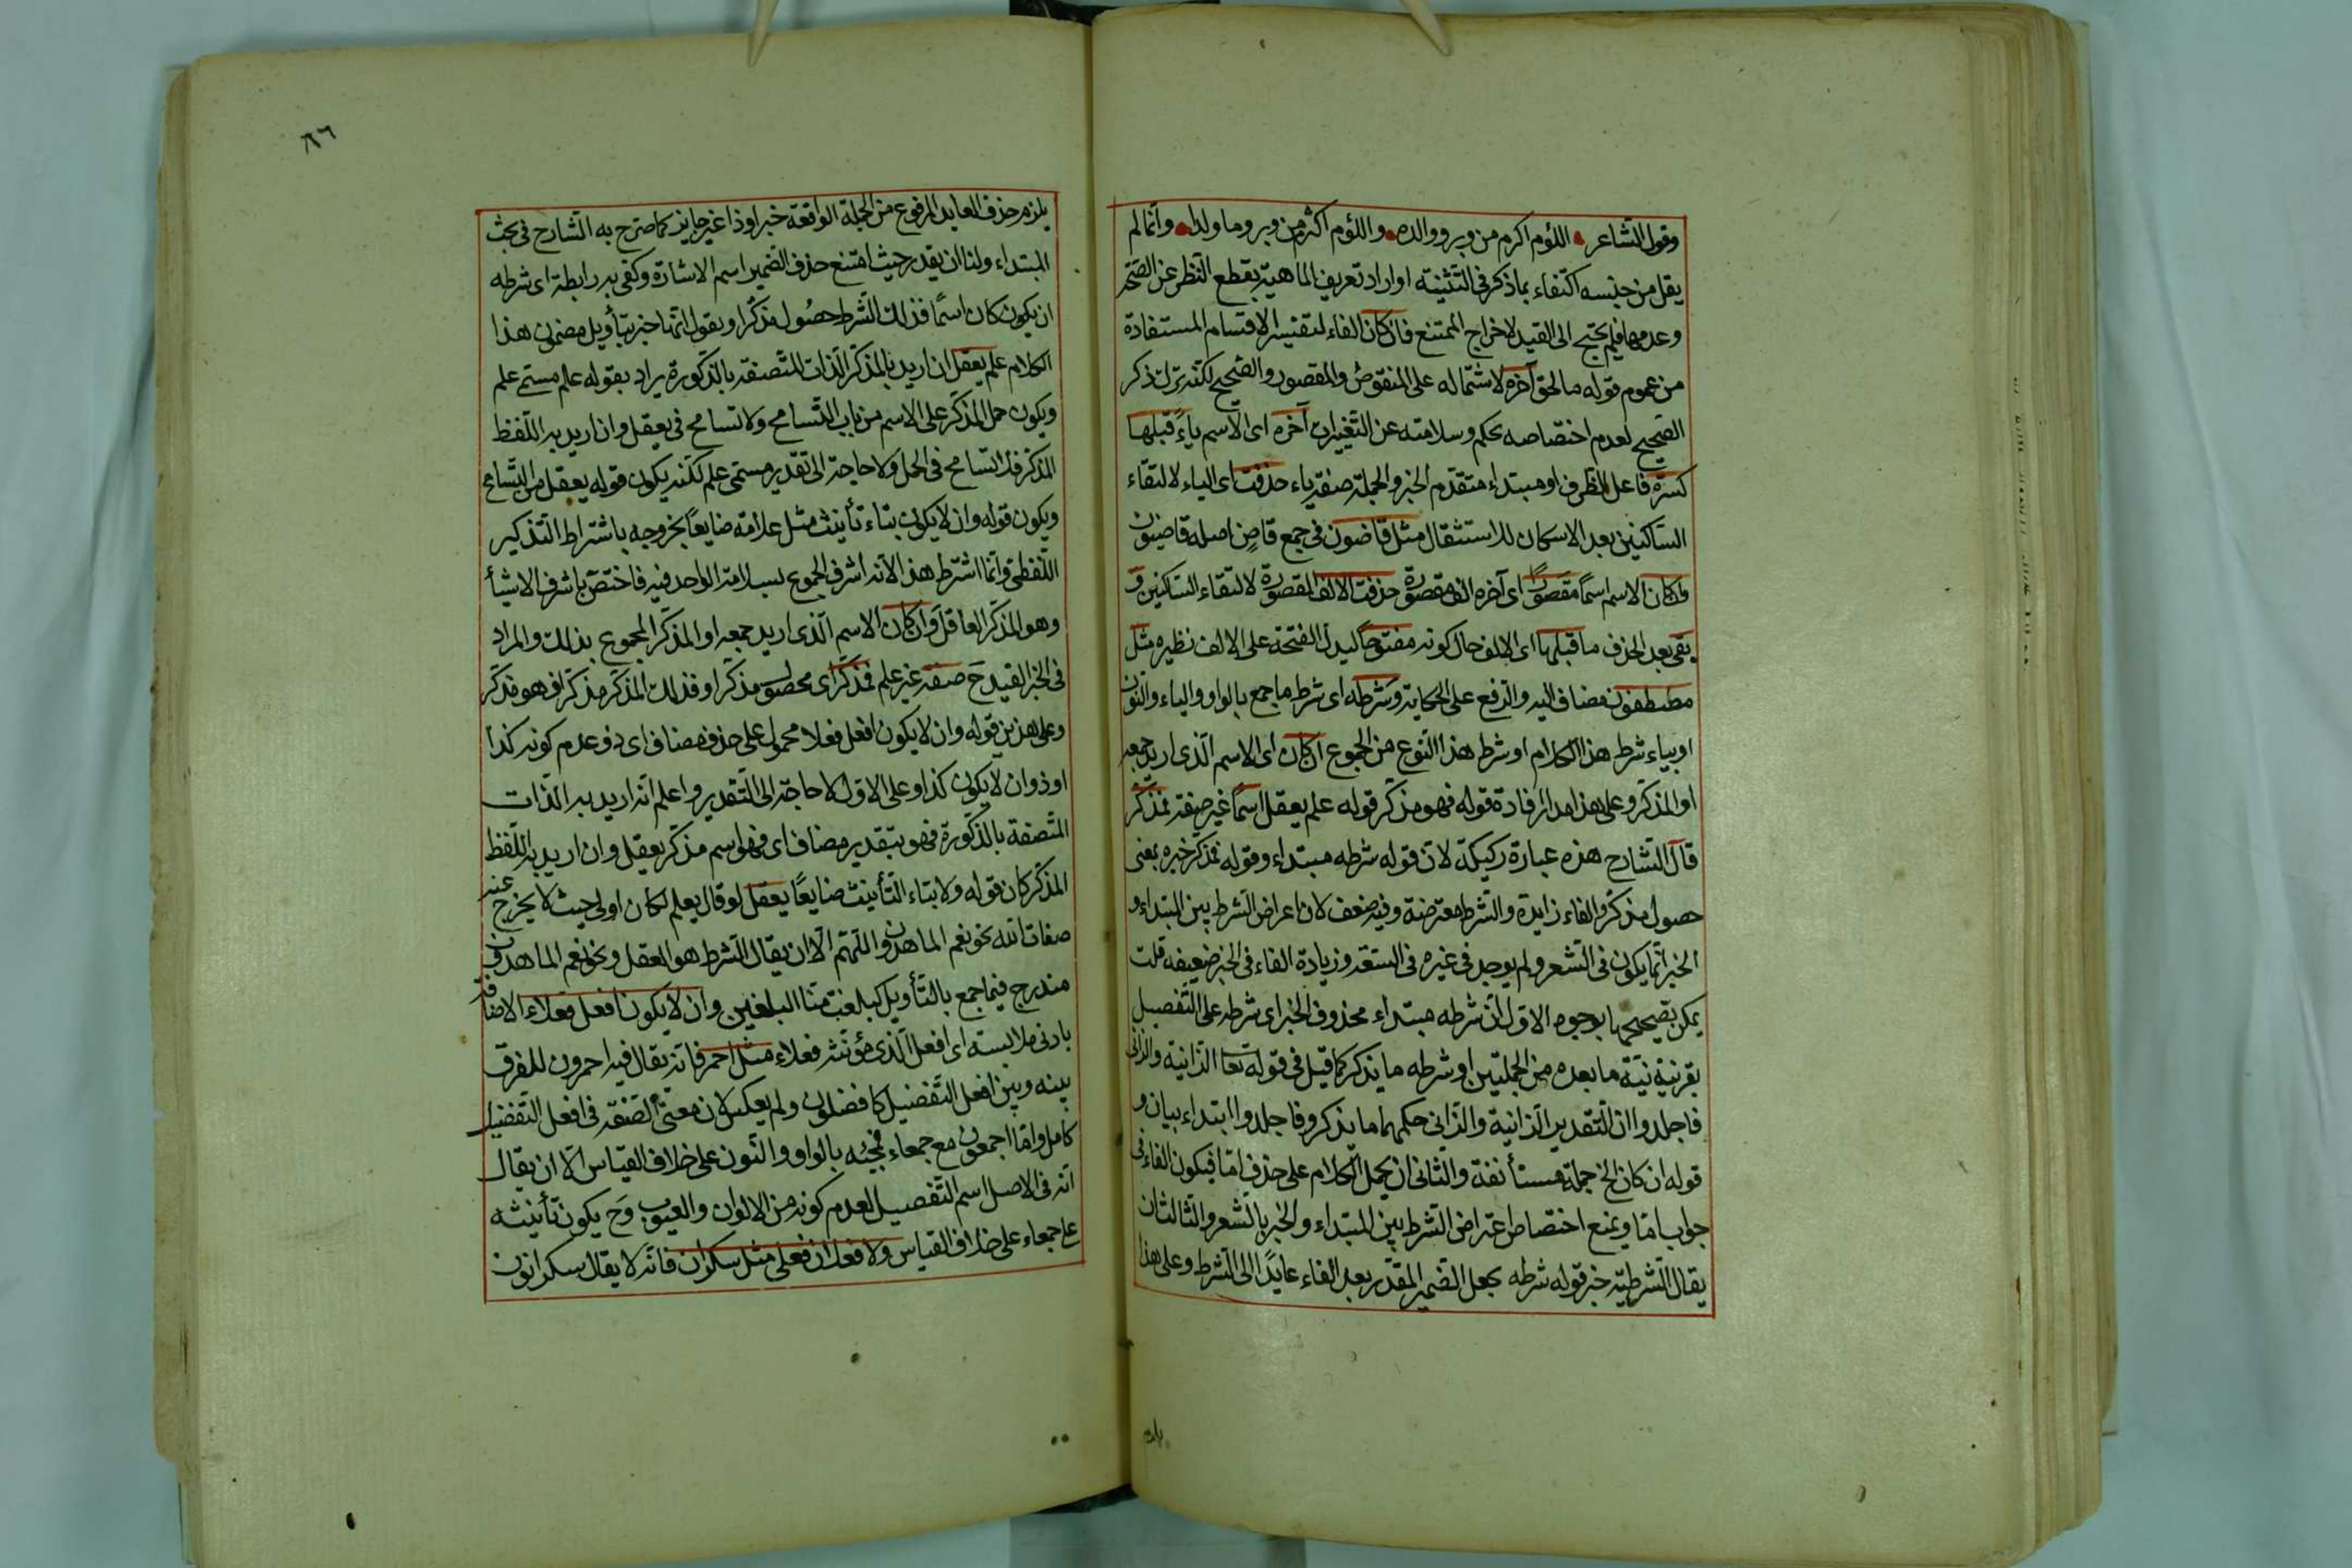 وقول الشاعر اللؤم اكرم من وبر ووالده واللؤم اكثر من وبر وما ولدا وانما لم
يقل من جنسه اكتفاء بما ذكر فى التثنية او اراد تعريف الماهية بقطع النظر عن الصحة
وعدمها فلم يحتج الى القيد لاخراج الممتنع فان كان الفاء لتفسير الاقسام المستفادة
من عموم قوله ما لحق آخره لاشتماله على المنقوص والمقصور والصحيح لكنه ترك ذكر
الصحيح لعدم اختصاصه بحكم وسلامته عن التغييرات آخره اى الاسم ياءً قبلها
كسرة فاعل الظرف او مبتداء متقدم الخبر والجملة صفة ياء حذفت اى الياء لالتقاء
الساكنين بعد الاسكان للاستثقال مثل قاضون فى جمع قاضٍ اصله قاضيون
وان كان الاسم اسمًا مقصورًا اى آخره الف مقصورة حذفت الالف المقصورة لالتقاء الساكنين و
بقى بعد الحذف ما قبلها اى الالف حال كونه مفتوحًا ليدل الفتحة على الالف نظيره مثل
مصطفون مضاف اليه والرفع على الحكاية وشرطه اى شرط ما جمع بالواو والياء والنون
او بياء شرط هذا الكلام او شرط هذا النوع من الجموع ان كان اى الاسم الذى اريد جمعه
او المذكر وعلى هذا مدار فادة قوله فهو مذكر قوله علم يعقل اسمًا غير صفة فمذكر
قال الشارح هذه عبارة ركيكة لان قوله شرطه مبتداء وقوله فمذكر خبره بمعنى
حصول مذكر والفاء زايدة والشرط معترضة وفيه ضعف لان اعراض الشرط بين المبتداء و
الخبر انما يكون فى الشعر ولم يوجد فى غيره فى السعة وزيادة الفاء فى الخبر ضعيفه قلت
يمكن تصحيحها بوجوه الاول ان شرطه مبتداء محذوف الخبر اى شرطه على التفصيل
بقرينة نية ما بعده من الجملتين او شرطه ما يذكر كما قيل فى قوله تعا الزانية والزانى
فاجلدوا ان التقدير الزانية والزانى حكمهما ما يذكر وفاجلدوا ابتداء بيان و
قوله ان كان الخ جملة مستأنفة والثانى ان يحمل الكلام على حذف اما فيكون الفاء فى
جواب اما ويمنع اختصاص اعتراض الشرط بين المبتداء والخبر بالشعر والثالث ان
يقال الشرطية خبر قوله شرطه بجعل الضمير المقدر بعد الفاء عايدًا الى الشرط وعلى هذا
٨٦
يلزم حذف العايد المرفوع من الجملة الواقعة خبرا وذا غير جايز كما صرح به الشارح فى بحث
المبتداء ولنا ان يقدر حيث امتنع حذف الضمير اسم الاشارة وكفى به رابطة اى شرطه
ان يكون كان اسمًا فذلك الشرط حصول مذكر او يقول انها خبر بتأويل مضمون هذا
الكلام علم يعقل ان اريد بالمذكر الذات المتصفة بالذكورة يراد بقوله علم مسمى علم
ويكون حمل المذكر على الاسم من باب التسامح ولا تسامح فى يعقل وان اريد به اللفظ
المذكر فلا تسامح فى الحمل ولا حاجة الى تقدير مسمى علم لكنه يكون قوله يعقل من التسامح
ويكون قوله وان لا يكون بتاء تأنيث مثل علامة ضايعًا بخروجه باشتراط التذكير
اللفظى وانما اشترط هذا لانه اشرف الجموع لسلامة الواحد فيه فاختص باشرف الاشيأ
وهو المذكر العاقل وان كان الاسم الذى اريد جمعه او المذكر المجموع بذلك والمراد
فى الخبر القيد ح صفة غير علم فمذكر اى محصول مذكر او فذلك المذكر مذكر او هو مذكر
وعلى هذين قوله وان لا يكون افعل فعلا محمول على حذف مضاف اى ذو عدم كونه كذا
او ذو ان لا يكون كذا وعلى الاول لا حاجة الى التقدير واعلم انه اريد به الذات
المتصفة بالذكورة فهو بتقدير مضاف اى فهو اسم مذكر يعقل وان اريد به اللفظ
المذكر كان قوله ولا بتاء التأنيث ضايعًا يعقل لو قال يعلم لكان اولى حيث لا يخرج عنه
صفات الله نحو نعم الماهدون اللهم الا ان يقال الشرط هو العقل ونحو نعم الماهدون
مندرج فيما جمع بالتأويل كبلغت منا البلغين وان لا يكون افعل فعلاء الاضافة
بادنى ملابسته اى افعل الذى مؤنثه فعلاء مثل احمر فانه يقال فيه احمرون للفرق
بينه وبين افعل التفضيل كافضلون ولم يعكس لان معنى الصفة فى افعل التفضيل
كامل واما اجمعون مع جمعاء فمجيئه بالواو والنون على خلاف القياس الا ان يقال
انه فى الاصل اسم التفضيل لعدم كونه من الالوان والعيوب وح يكون تأنيثه
على جمعاء على خلاف القياس ولا فعلان فعلى مثل سكران فانه لا يقال سكرانون